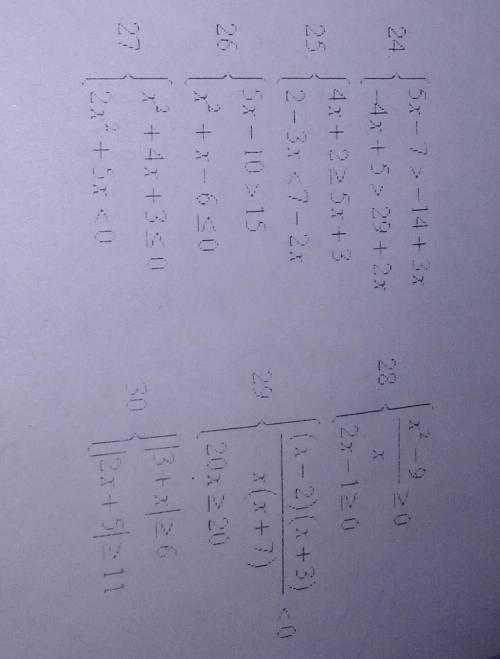 24. { 5x − 7 > −14 + 3x
−4x + 5 > 29 + 2x
25. { 4x + 2 ≥ 5x + 3
2 − 3x < 7 − 2x
26. { 5x − 10 > 15
x² + x − 6 ≤ 0
27. { x² + 4x + 3 ≤ 0
2x² + 5x < 0
28. { (x² − 9)/x ≥ 0
2x − 1 ≥ 0
29. { (x − 2)(x + 3)/x(x + 7) < 0
20x ≥ 20
30. { |3 + x| ≥ 6
|2x + 5| ≥ 11